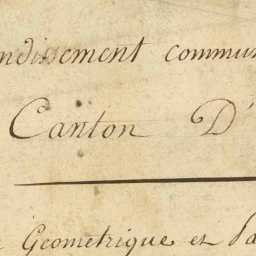 ndissement commu
Canton D'
Géometrique et